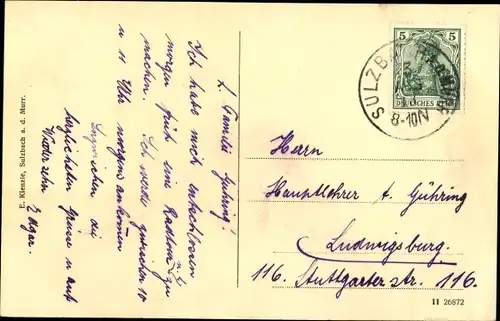 L. Familie Gühring!
Ich habe mich entschlossen
morgen früh eine Radtour zu
machen. Ich werde zwischen 10
u 11 Uhr morgens ankommen
die
herzlichsten Grüsse u auf
Wiedersehn
Edgar.
E. Kienzle, Sulzbach a. d. Murr.
5 5
DEUTSCHES REICH
SULZBACH
8-10N
Herrn
Hauptlehrer a. Gühring
Ludwigsburg.
116. Stuttgarter str. 116.
II 26872